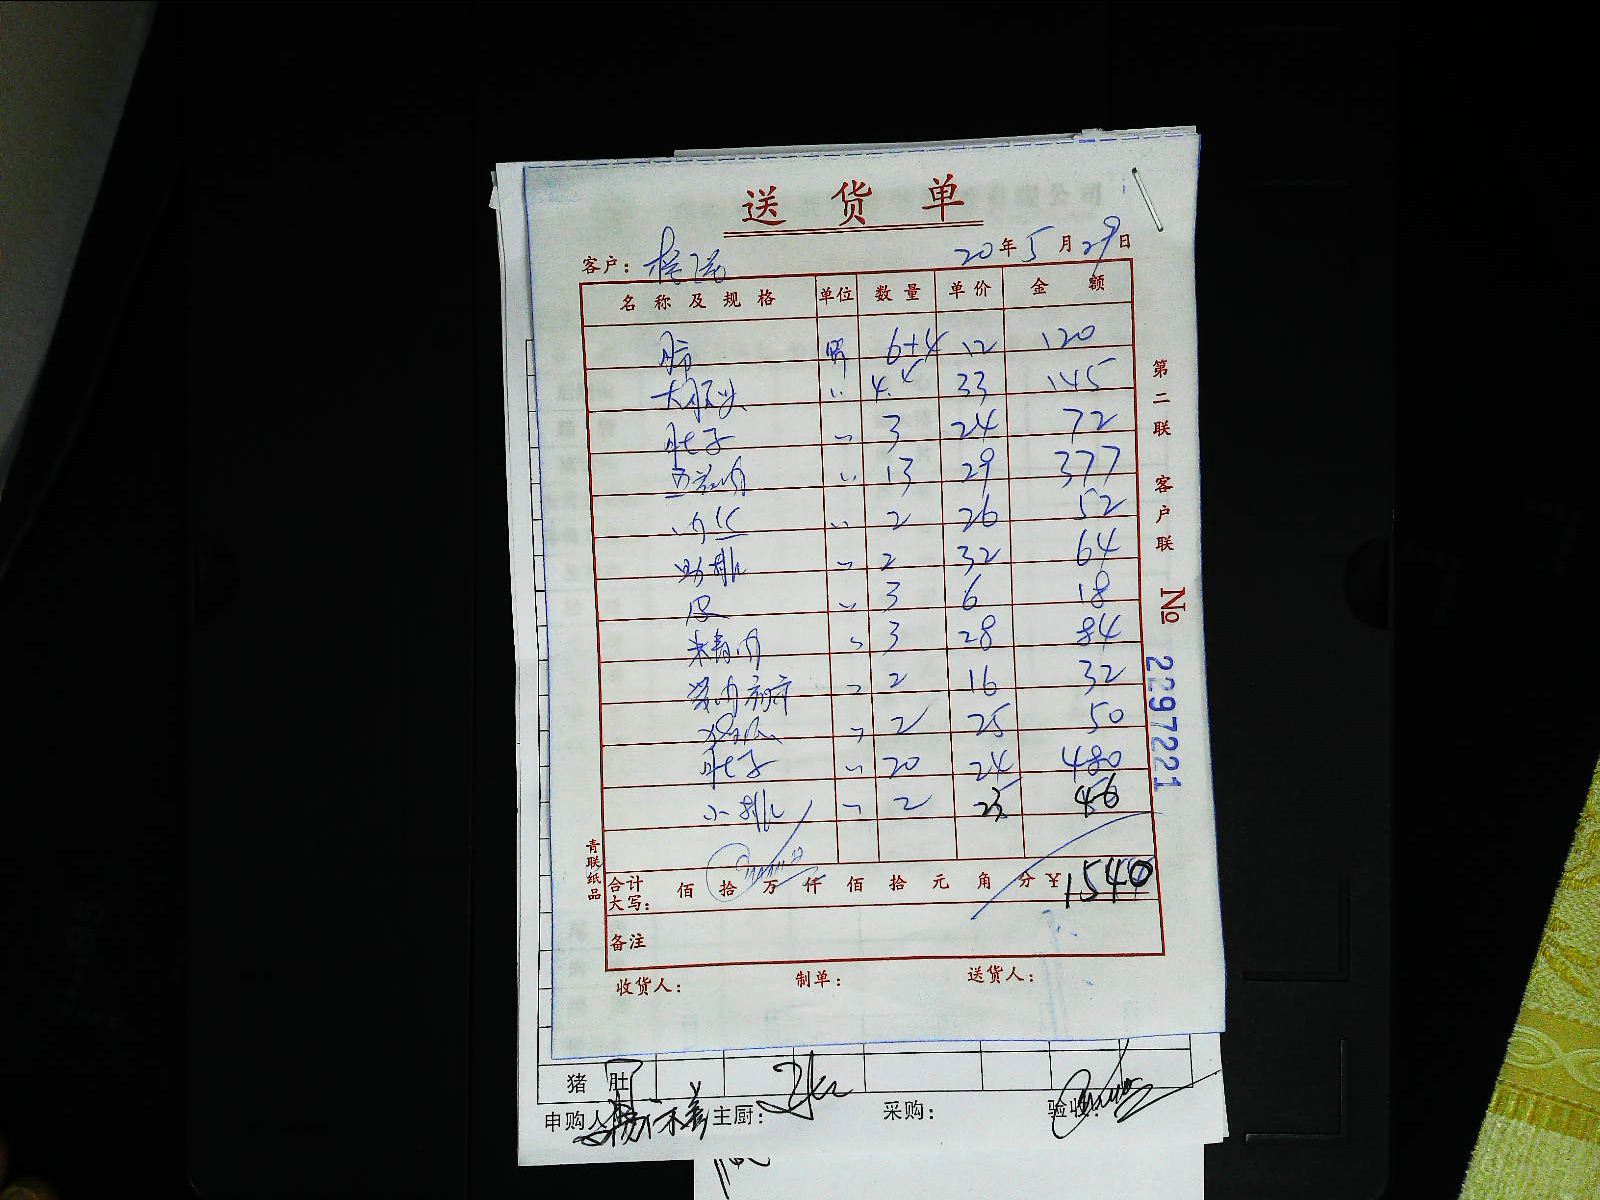 送货单
客户： 20年5月29日
名称及规格 单位 数量 单价 金额
6+4 12 120
大肠头 〃 4.4 33 145
肚子 〃 3 24 72
五花肉 〃 13 29 377
肉丝 〃 2 26 52
肋排 〃 2 32 64
皮 〃 3 6 18
夹精肉 〃 3 28 84
〃 2 16 32
〃 2 25 50
肚子 〃 20 24 480
小排 〃 2 23 46
合计大写： 佰 拾 万 仟 佰 拾 元 角 分 ¥1540
备注
收货人： 制单： 送货人：
第二联 客户联
№ 2297221
青联纸品
猪肚
申购人 主厨： 采购： 验收：